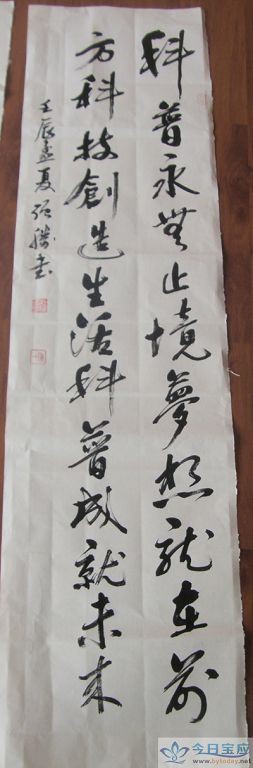 科普永無止境夢想就在前
方科技創造生活科普成就未来
壬辰孟夏书
今日宝应
www.bytoday.net